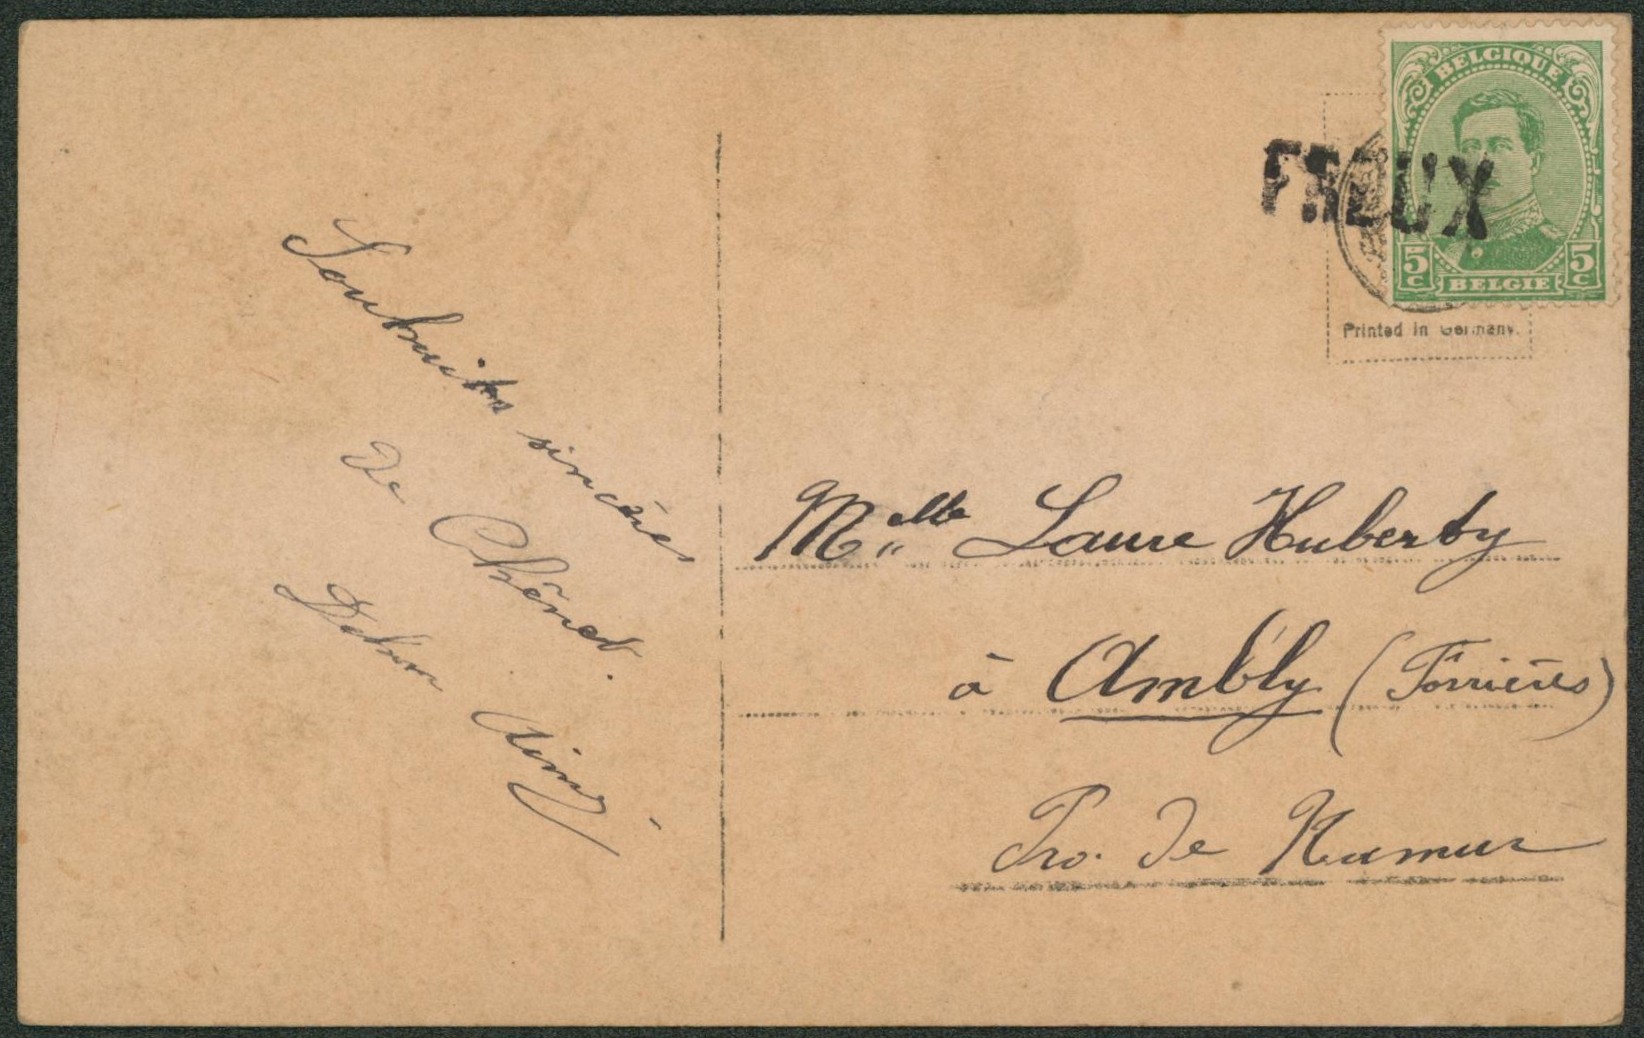 Souhaits sincères
de Chênet.
Aimé
BELGIQUE
FREUX
5c BELGIE 5c
Printed in Germany.
Melle Laure Huberty
à Ambly (Forrières)
Pro. de Namur